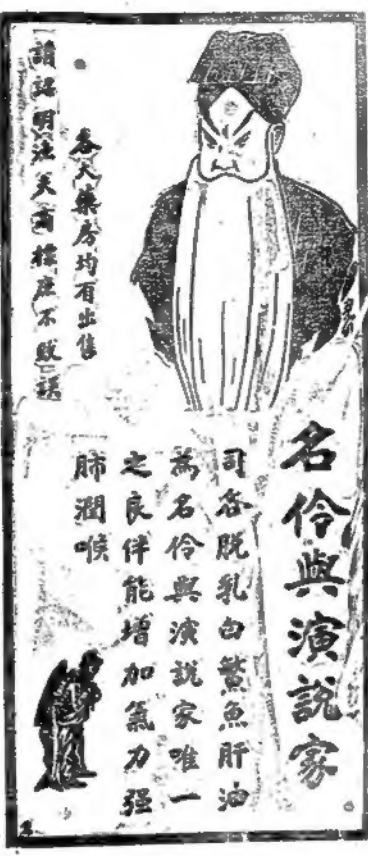 名伶與演說家
司各脫乳白鰵魚肝油
為名伶與演說家唯一
之良伴能增加氣力强
肺潤喉
各大藥房均有出售
請認明漁夫商標庶不致誤